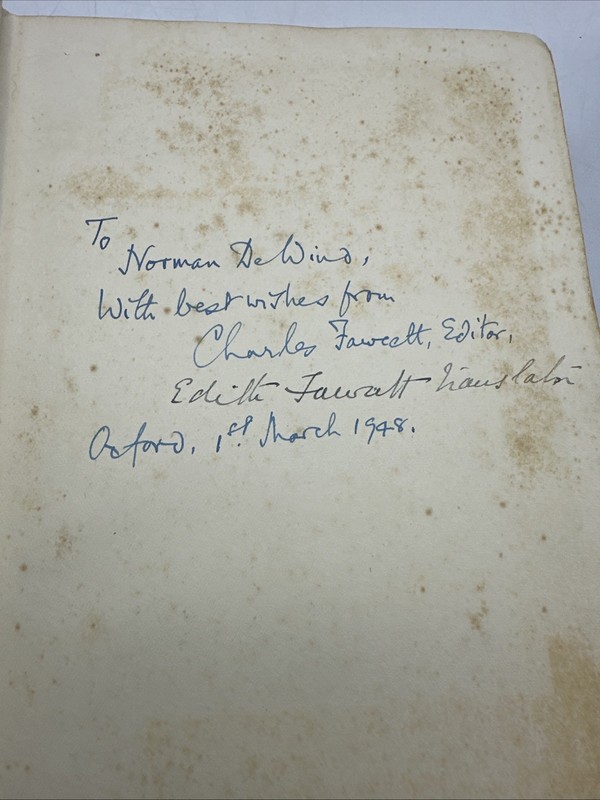 To
Norman DeWind,
With best wishes from
Charles Fawcett, Editor,
Edith Fawcett Translator
Oxford, 1st March 1948.